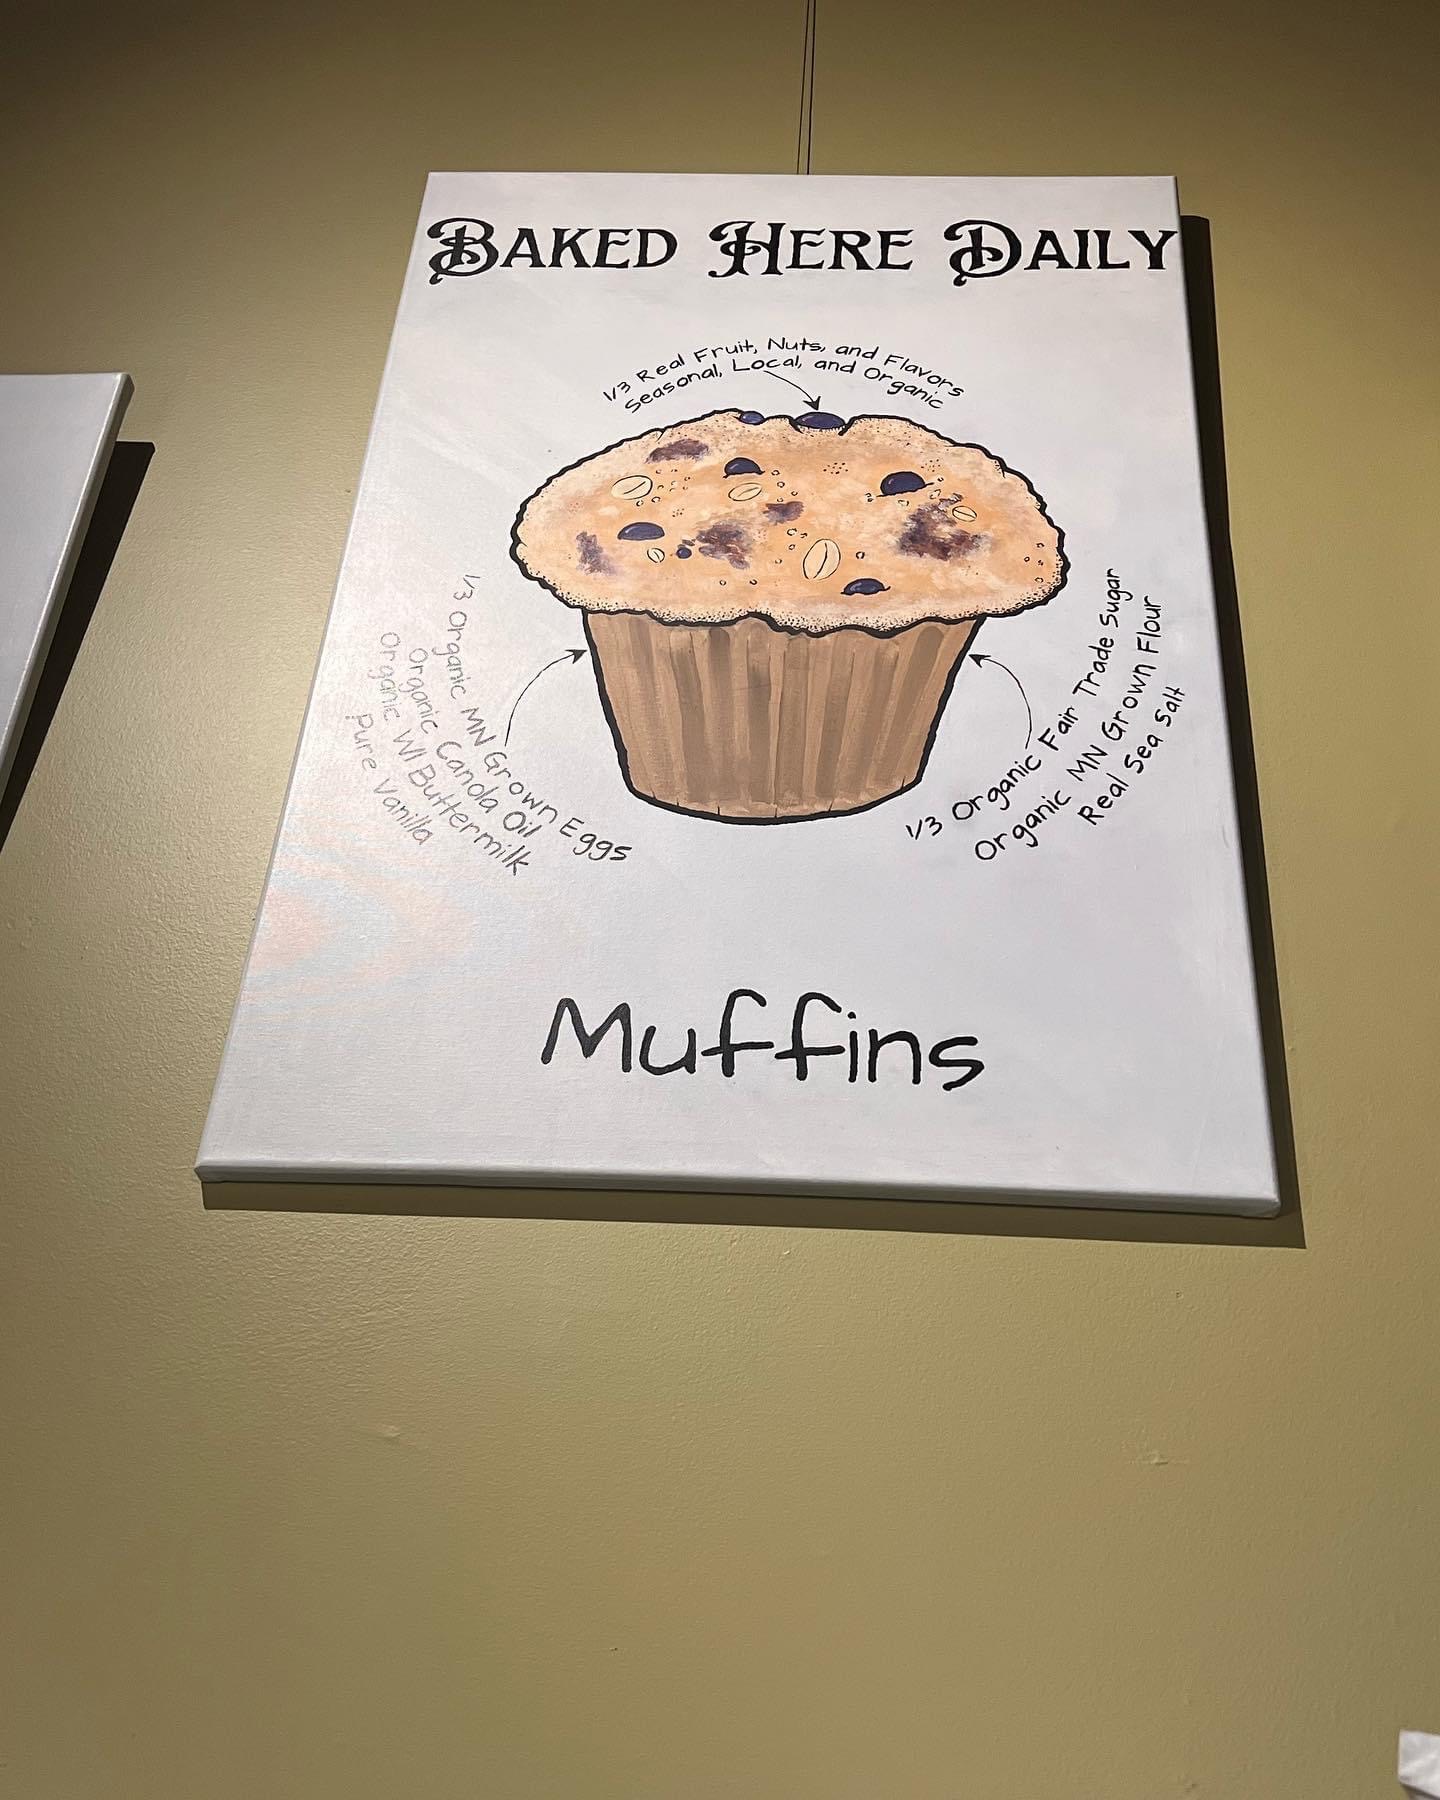 BAKED HERE DAILY
1/3 Real Fruit, Nuts, and Flavors
Seasonal, Local, and Organic
1/3 Organic MN Grown Eggs
Organic Canola Oil
Organic WI Buttermilk
Pure Vanilla
1/3 Organic Fair Trade Sugar
Organic MN Grown Flour
Real Sea Salt
Muffins